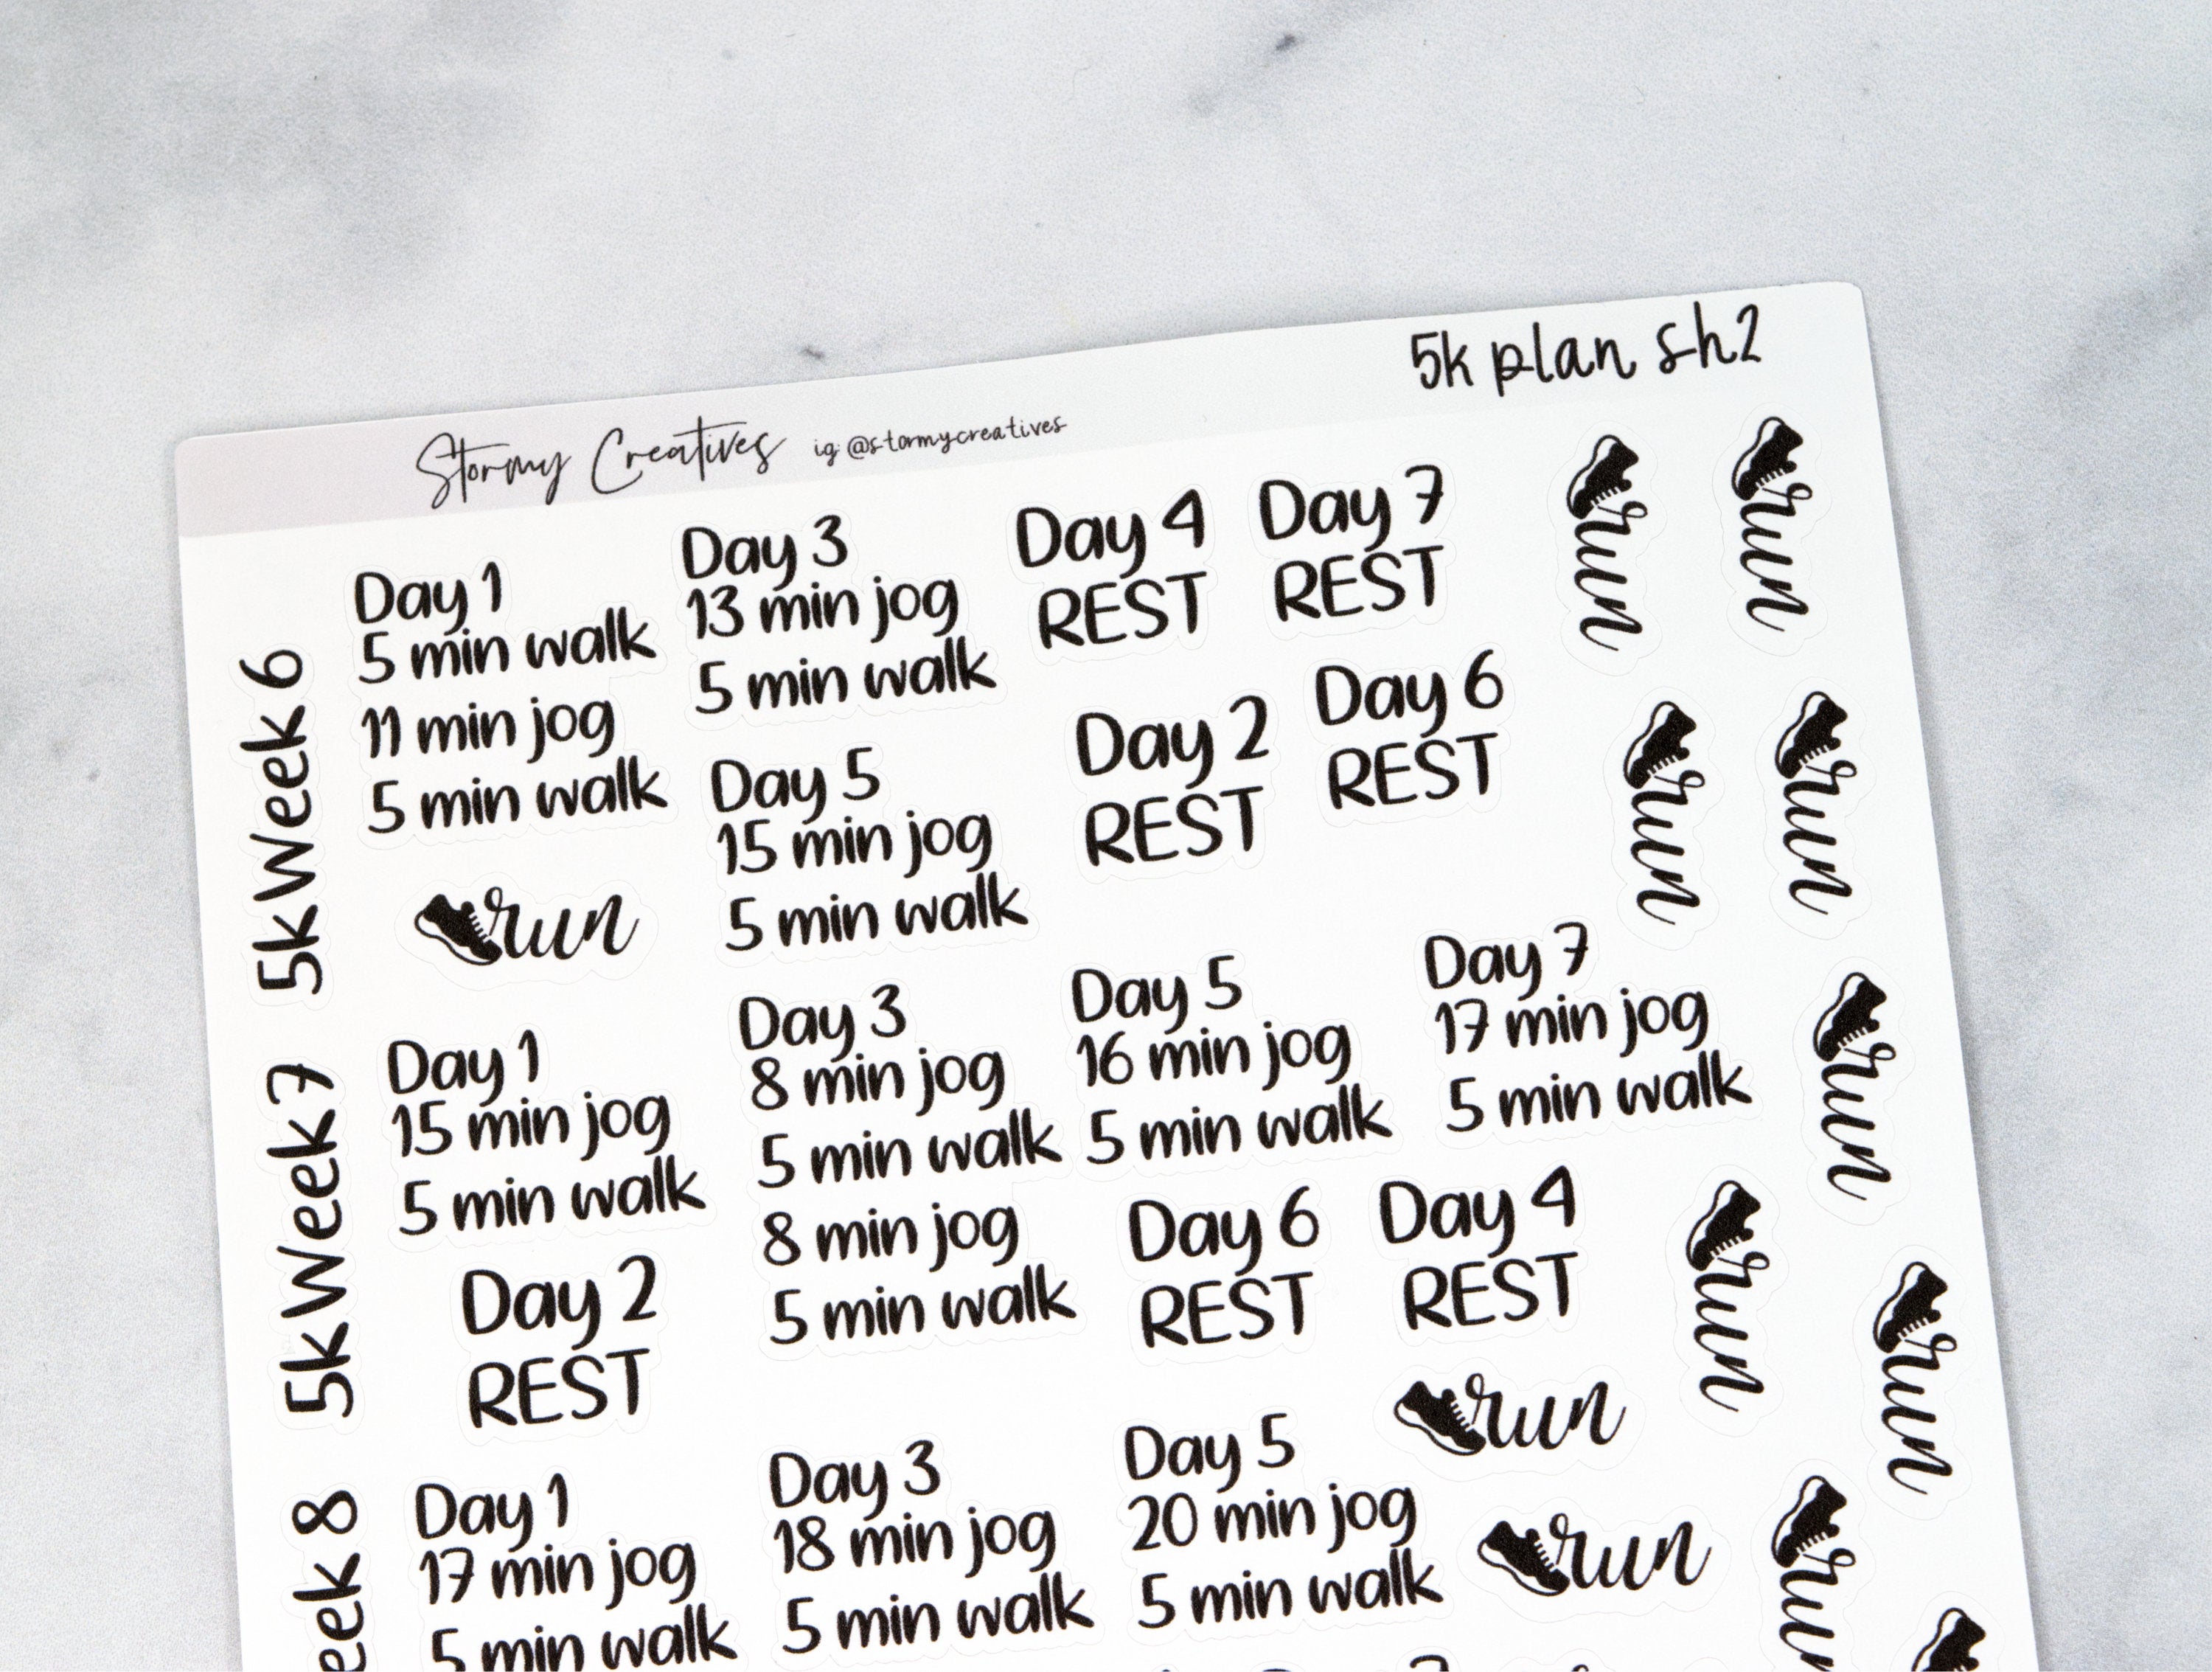 5k plan sh2
Stormy Creatives ig: @stormycreatives
5k Week 6
Day 1
5 min walk
11 min jog
5 min walk
run
Day 3
13 min jog
5 min walk
Day 5
15 min jog
5 min walk
Day 4
REST
Day 7
REST
Day 2
REST
Day 6
REST
run
run
run
run
5k Week 7
Day 1
15 min jog
5 min walk
Day 2
REST
Day 3
8 min jog
5 min walk
8 min jog
5 min walk
Day 5
16 min jog
5 min walk
Day 7
17 min jog
5 min walk
Day 6
REST
Day 4
REST
run
run
run
run
eek 8
Day 1
17 min jog
5 min walk
Day 3
18 min jog
5 min walk
Day 5
20 min jog
5 min walk
run
run